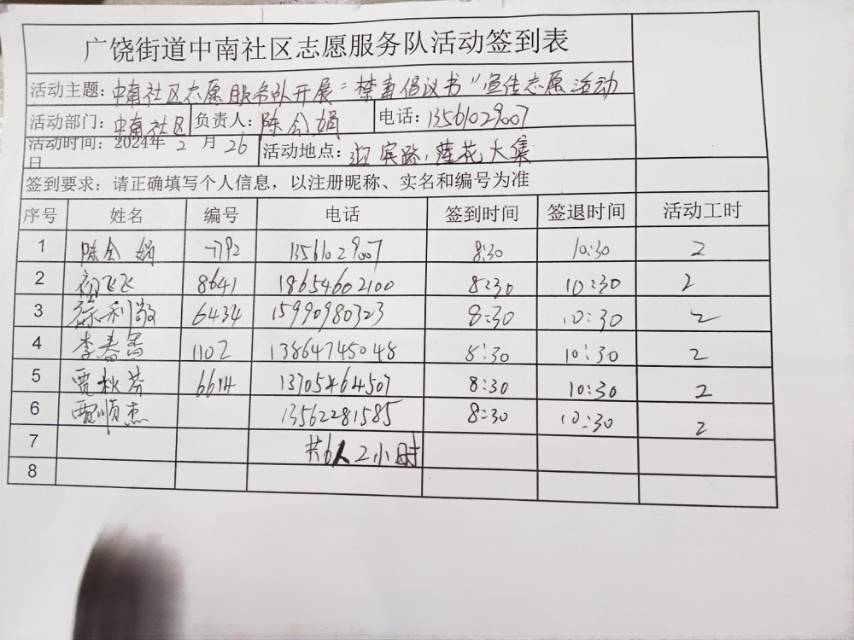 广饶街道中南社区志愿服务队活动签到表
活动主题：中南社区志愿服务队开展“禁毒倡议书”宣传志愿活动
活动部门：中南社区 负责人：陈会娟 电话：13561029007
活动时间：2024年 2 月 26日 活动地点：迎宾路，莲花大集
签到要求：请正确填写个人信息，以注册昵称、实名和编号为准
序号 姓名 编号 电话 签到时间 签退时间 活动工时
1 陈会娟 13561029007 8:30 10:30 2
2 飞飞 8641 18654602100 8:30 10:30 2
3 徐利敏 6434 15990980323 8:30 10:30 2
4 李春 1102 13864745048 8:30 10:30 2
5 贾秋芬 6614 13705464507 8:30 10:30 2
6 顺杰 13562281585 8:30 10:30 2
7 共6人2小时
8